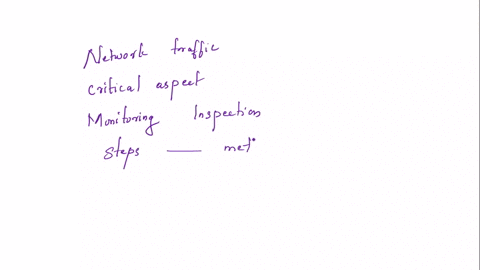 Network traffic
critical aspect
Monitoring Inspection
steps — met